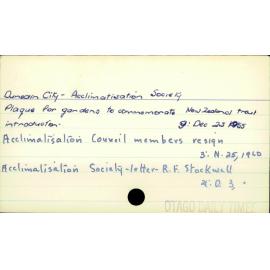 Dunedin City - Acclimatisation Society
Plaque for gardens to commemorate New Zealand trout
introduction. 9: Dec 23 1965
Acclimatisation Council members resign
3: N. 25, 1960
Acclimatisation Society - letter R. F. Stockwell
OTAGO DAILY TIMES